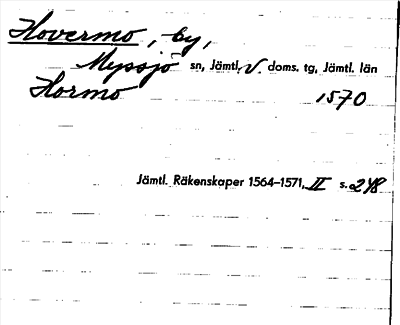 Hovermo, by,
Myssjö sn, Jämtl. V. doms. tg, Jämtl. län
Hormo 1570
Jämtl. Räkenskaper 1564–1571, II s. 248